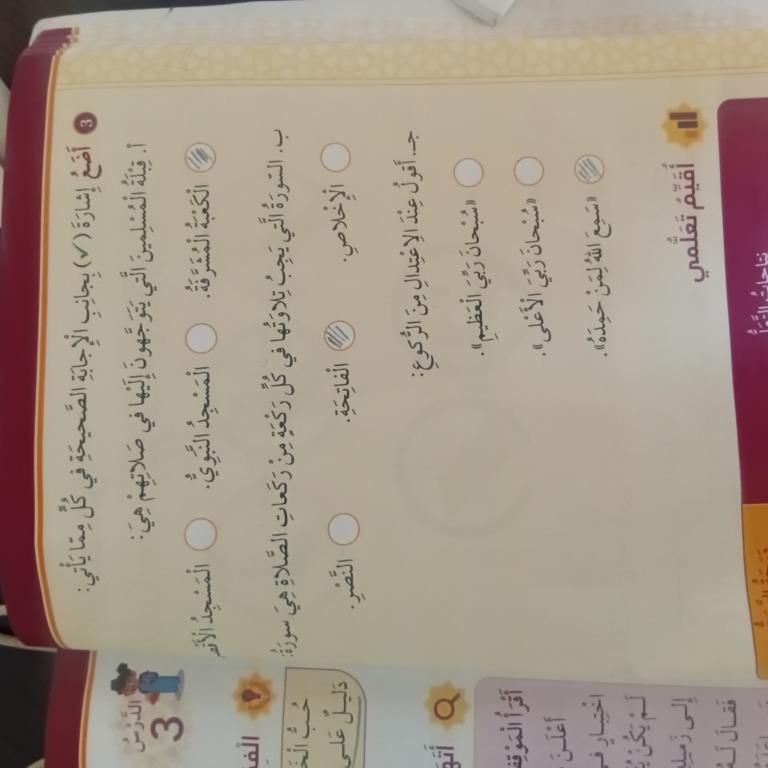 3 أَضَعُ إِشَارَةَ (✓) بِجَانِبِ الْإِجَابَةِ الصَّحِيحَةِ فِي كُلٍّ مِمّا يَأْتِي:
أ. قِبْلَةُ الْمُسْلِمِينَ الَّتِي يَتَوَجَّهُونَ إِلَيْها فِي صَلَاتِهِمْ هِيَ:
الْكَعْبَةُ الْمُشَرَّفَةُ. الْمَسْجِدُ النَّبَوِيُّ. الْمَسْجِدُ
ب. السّورَةُ الَّتِي يَجِبُ تِلَاوَتُها فِي كُلِّ رَكْعَةٍ مِنْ رَكَعَاتِ الصَّلَاةِ هِيَ سورَةُ:
الْإِخْلَاصِ. الْفَاتِحَةِ. النَّصْرِ.
جـ. أَقولُ عِنْدَ الِاعْتِدَالِ مِنَ الرُّكوعِ:
«سُبْحَانَ رَبِّيَ الْعَظِيمِ».
«سُبْحَانَ رَبِّيَ الْأَعْلَى».
«سَمِعَ اللهُ لِمَنْ حَمِدَهُ».
أُقَيِّمُ تَعَلُّمي
الدَّرْسُ
3
حُبُّ
دَلِيلٌ عَلَى
أَقْرَأُ الْمَوْقِفَ
اخْتِيارِ
أَعْلَنَ
لَمْ يَكُنْ
إِلى زَمِيلِهِ
فَقالَ لَهُ